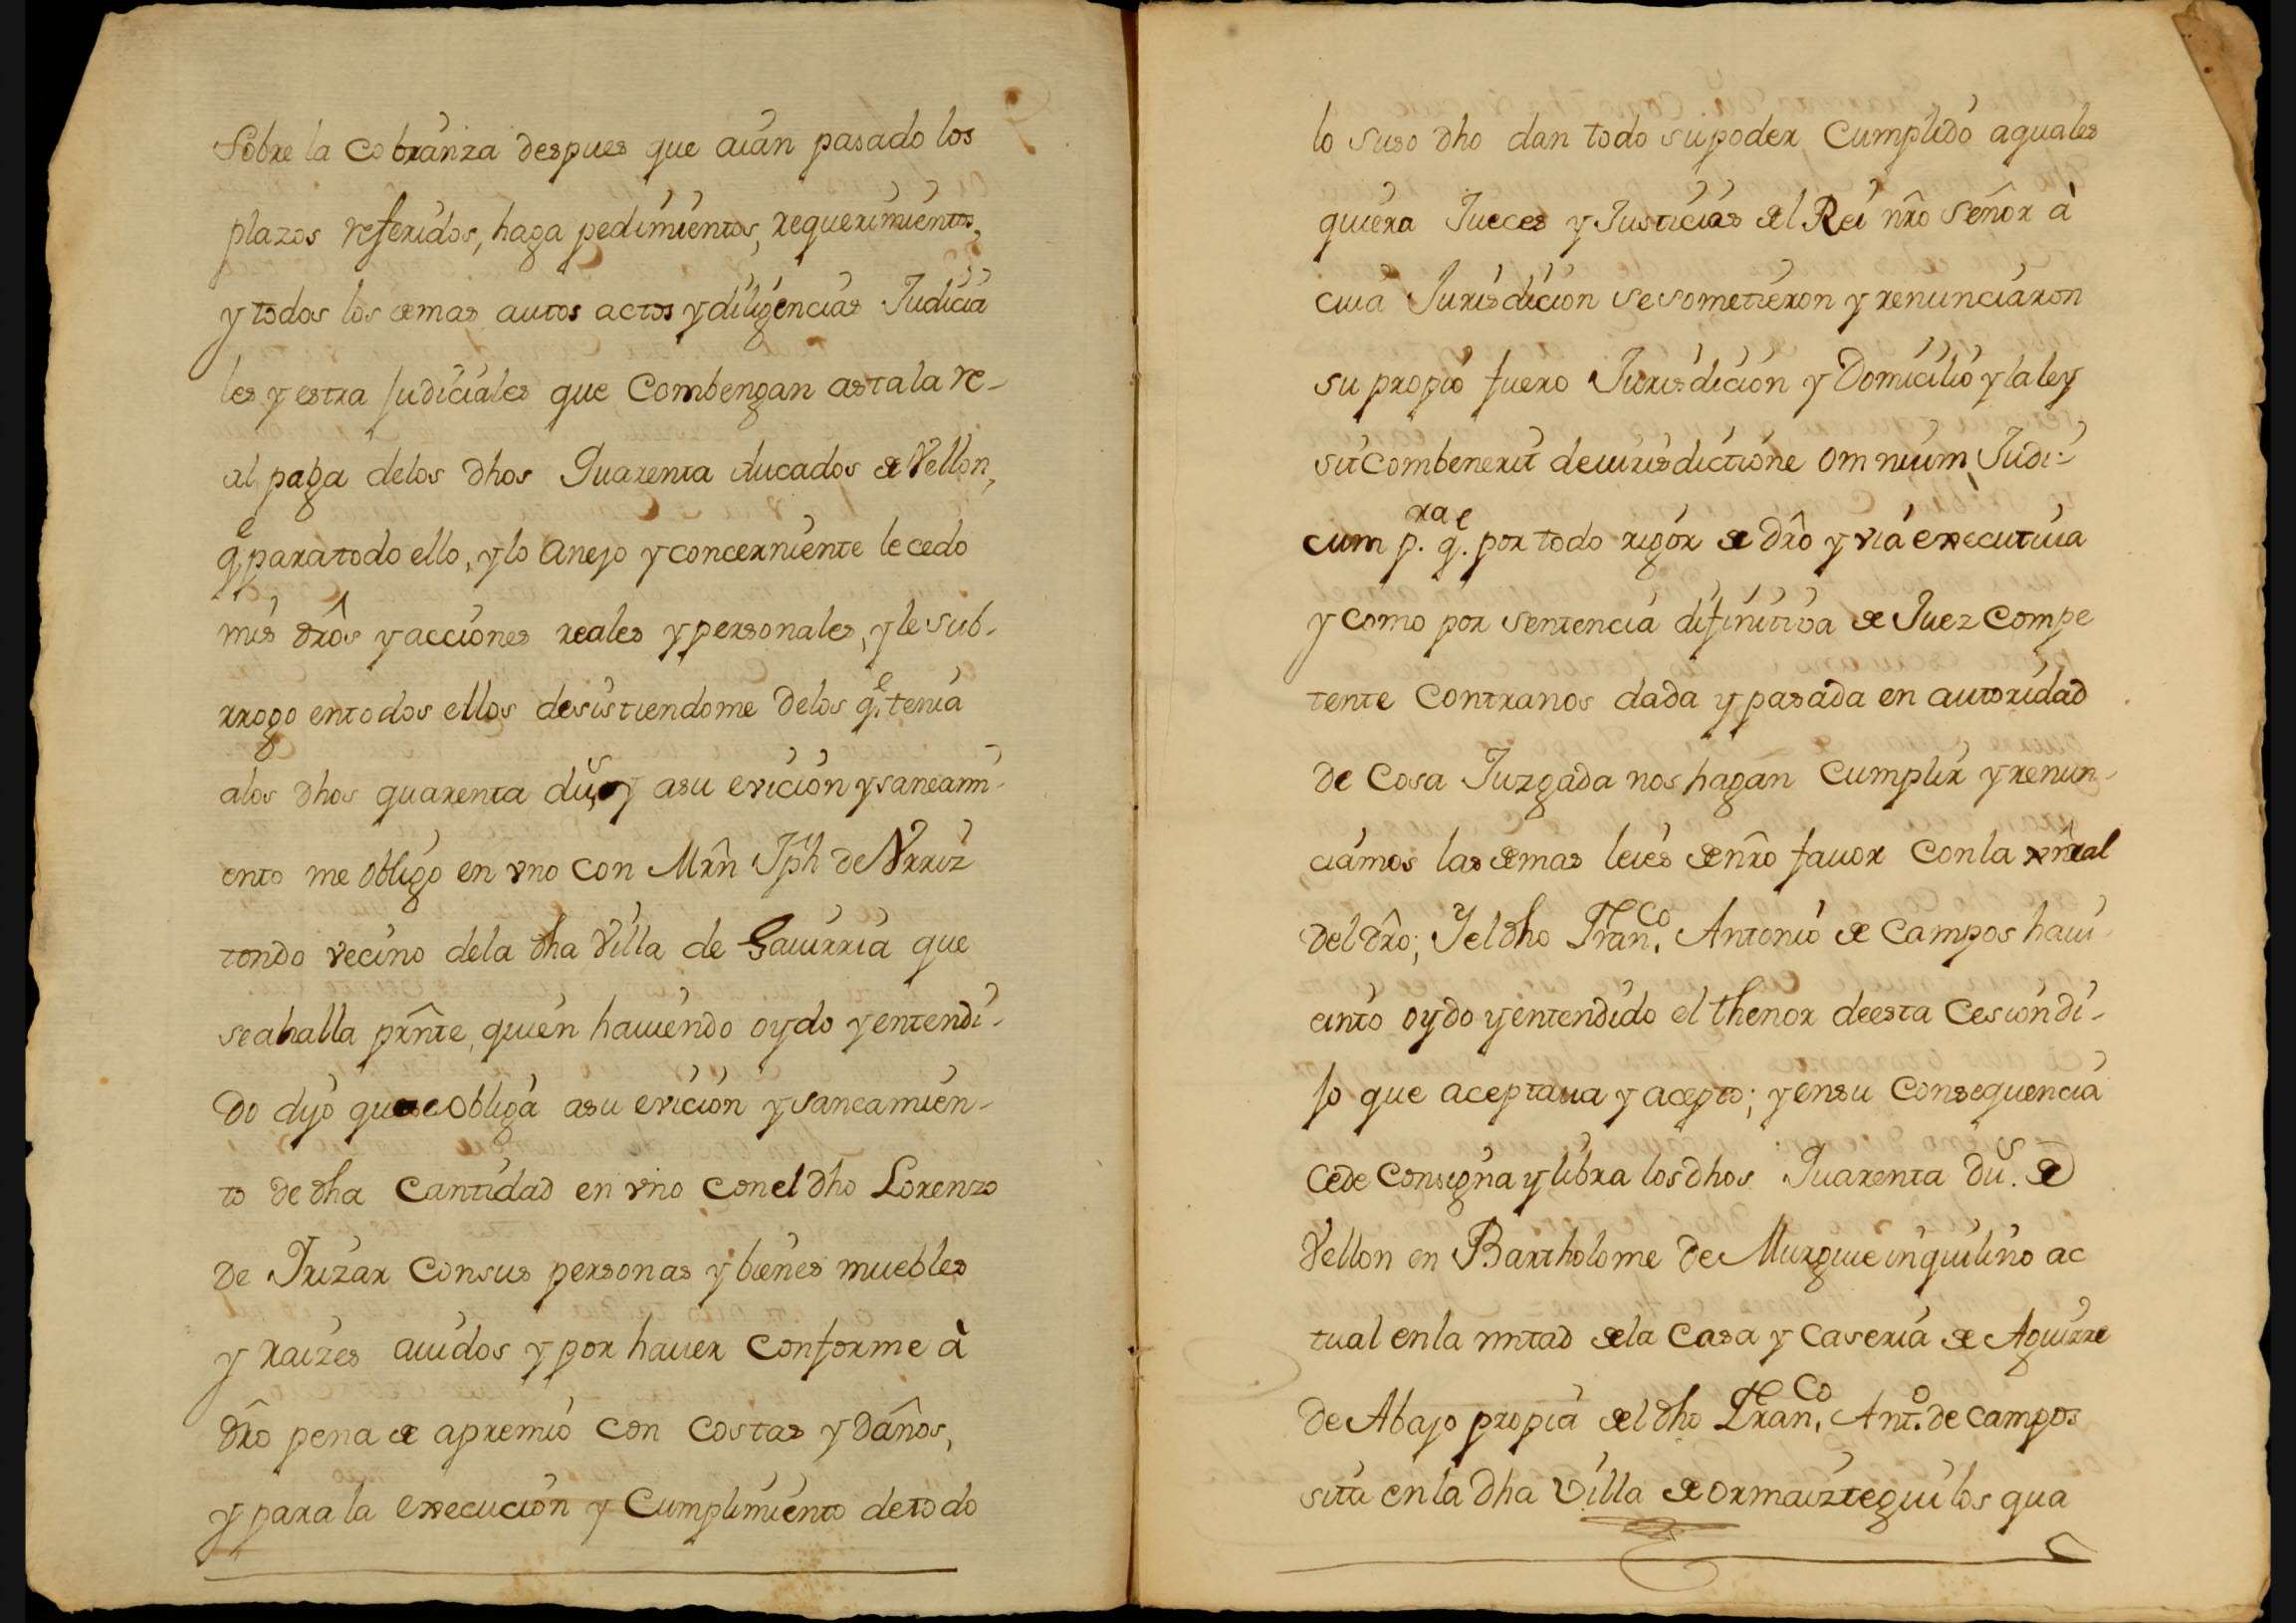 Sobre la Cobranza despues que aian pasado los
plazos referidos, haga pedimientos, requerimientos,
y todos los demas autos actos y diligencias Judicia
les y estra Judiciales que Combengan asta la re-
al paga delos dhos Quarenta ducados de Vellon,
q.e para todo ello, y lo anejo y concerniente le cedo
mis drôs y acciones reales y personales, y le sub-
rrogo en todos ellos desistiendome delos q.e tenia
alos dhos quarenta dus. y asu evición y saneami-
ento me obligo en vno con Mrn̂ Jph de Vrriz
tondo vecino dela dha Villa de Gauirria que
se ahalla prn̂te, quien hauiendo oydo y entendi-
do dijo que se obliga asu evición y saneamien-
to de dha Cantidad en vno con el dho Lorenzo
de Irizar Con sus personas y bienes muebles
y raizes auidos y por hauer Conforme à
drô pena de apremio con costas y daños,
y para la execución y Cumplimiento de todo
lo suso dho dan todo su poder Cumplido a quales
quiera Jueces y Justicias del Rei nrô Señor à
cuia Jurisdicion se sometieron y renunciaron
su propio fuero Jurisdición y Domicilio y la ley
sit combenerit de iurisdictione omnium Judi-
cum p.ra q.e por todo rigor de drô y via executiua
y como por sentencia difinitiva de Juez Compe
tente Contra nos dada y pasada en autoridad
de Cosa Juzgada nos hagan Cumplir y renun-
ciamos las demas leies de nrô fauor Con la xn̂ral
del drô; Y el dho Fran.co Antonio de Campos haui-
einto oydo y entendido el thenor de esta Cesión di-
jo que aceptaua y acepto; y en su Consequencia
Cede Consigna y libra los dhos Quarenta dus. de
Vellon en Bartholome de Murguie inquilino ac
tual en la mitad dela Casa y Caseria de Aguirre
de Abajo propia del dho Fran.co Ant.o de Campos
sita en la dha Villa de Ormaiztegui los qua